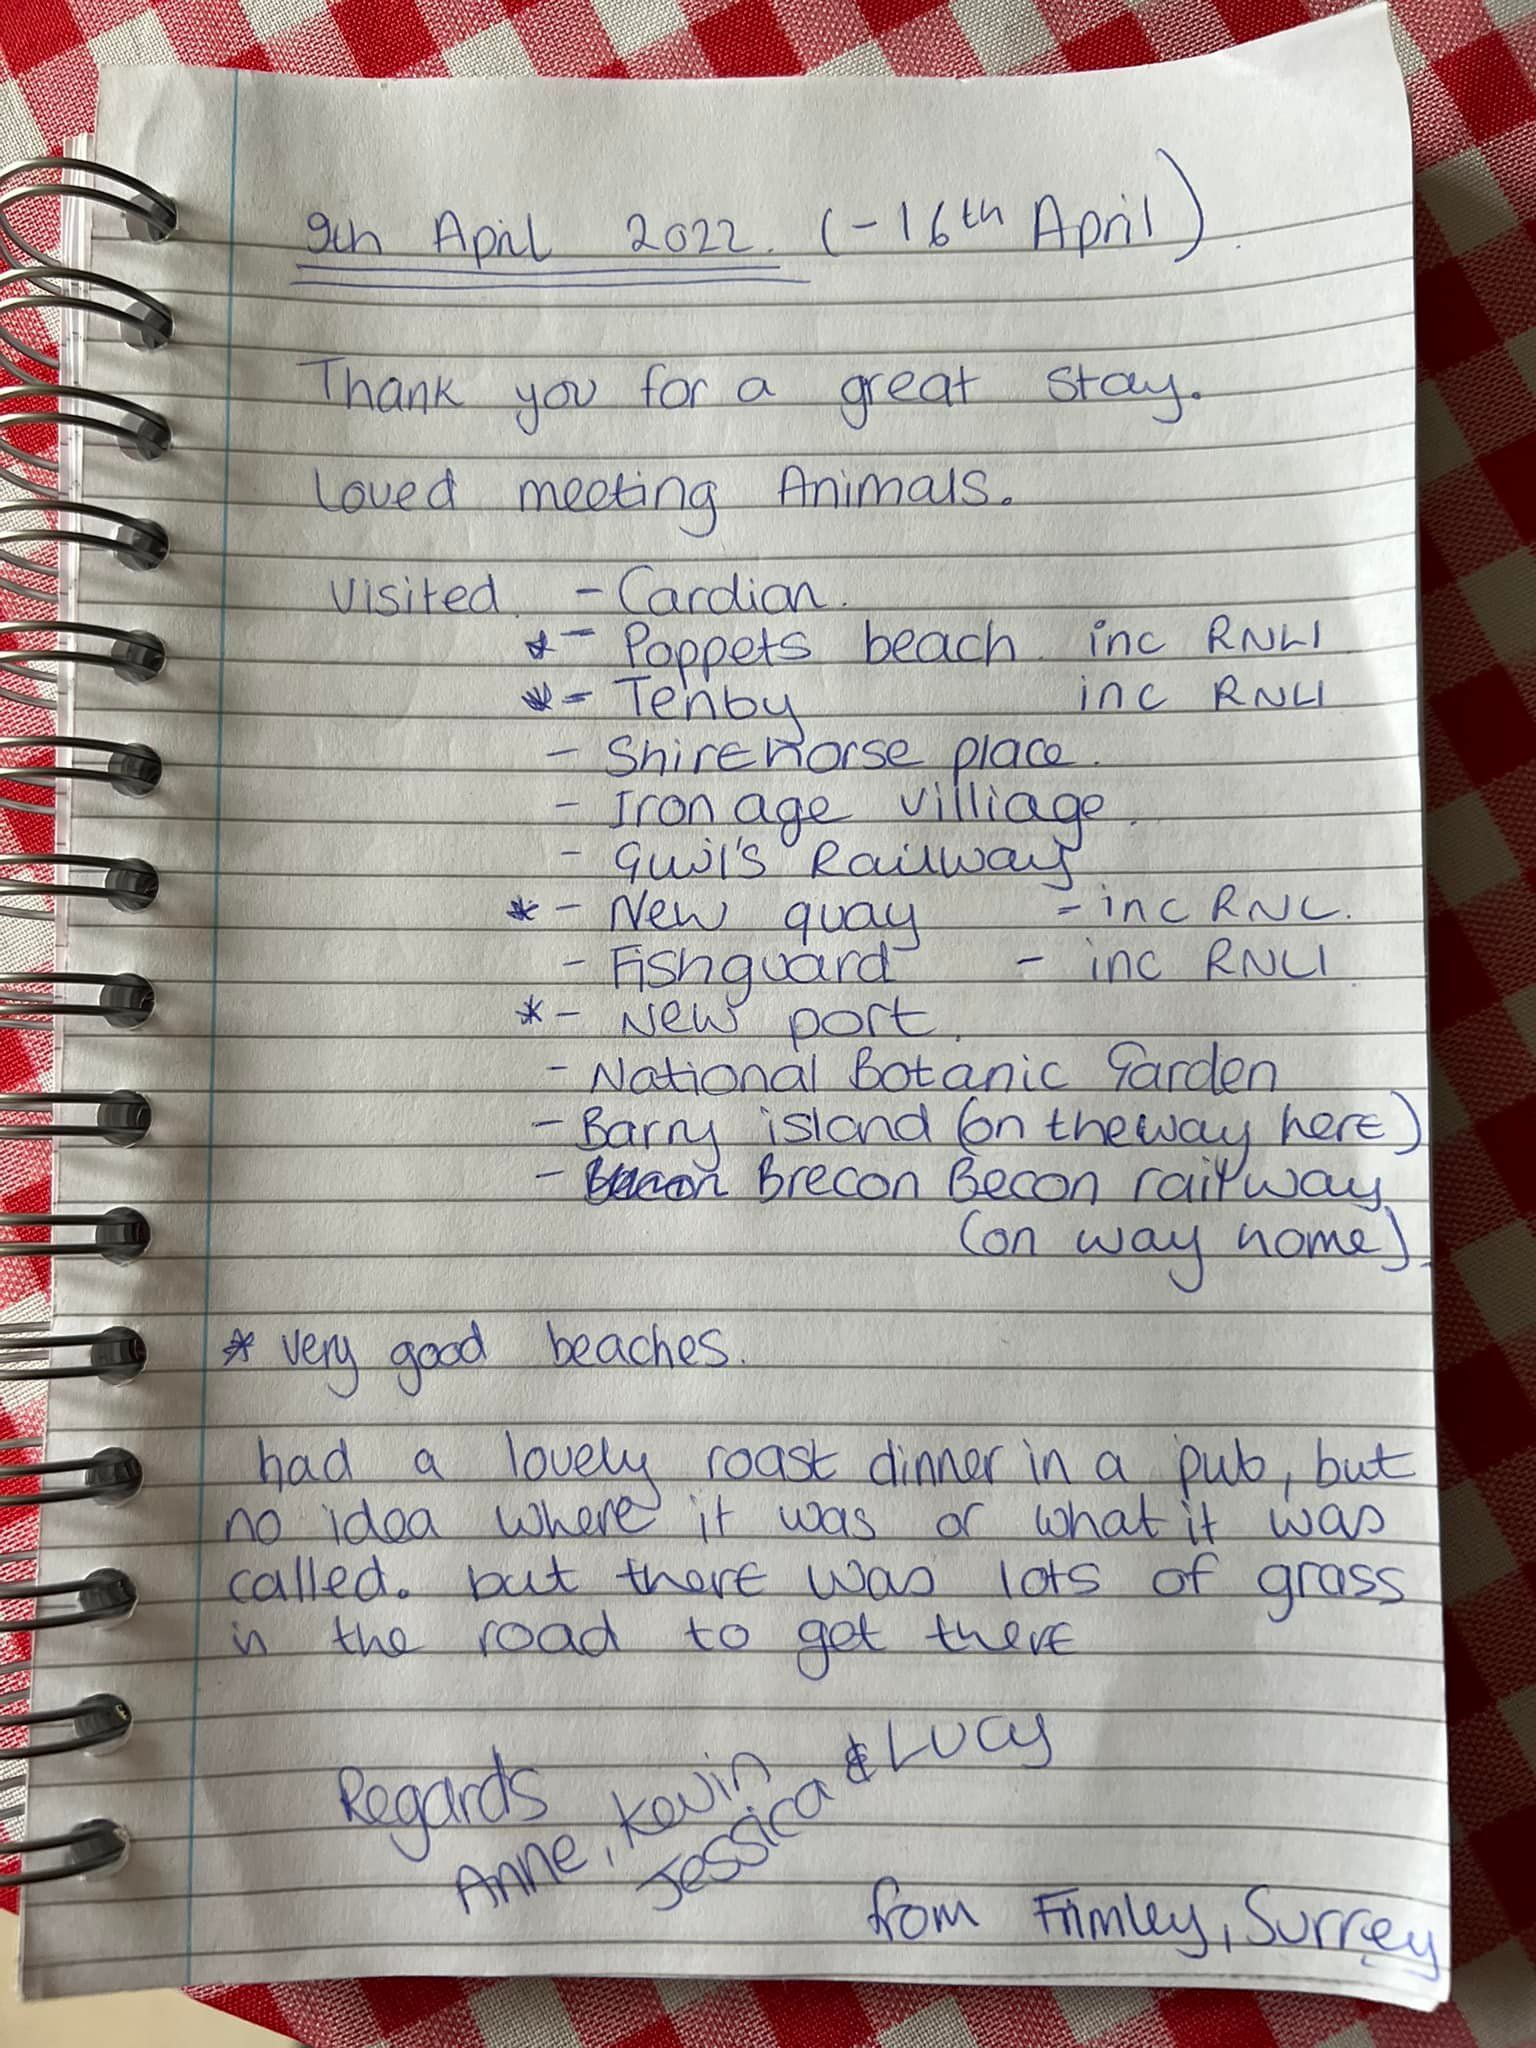 9th April 2022. (-16th April).
Thank you for a great stay.
Loved meeting Animals.
Visited. - Cardian.
* - Poppets beach. inc RNLI
* - Tenby inc RNLI
- Shirehorse place.
- Iron age villiage.
- Gwil's Railway
* - New quay - inc RNL.
- Fishguard - inc RNLI
* - New port.
- National Botanic Garden
- Barry island (on the way here)
- Brecon Becon railway
(on way home).
* very good beaches.
had a lovely roast dinner in a pub, but
no idea where it was or what it was
called. but there was lots of grass
in the road to get there
Regards
Anne, Kevin
Jessica & Lucy
from Frimley, Surrey